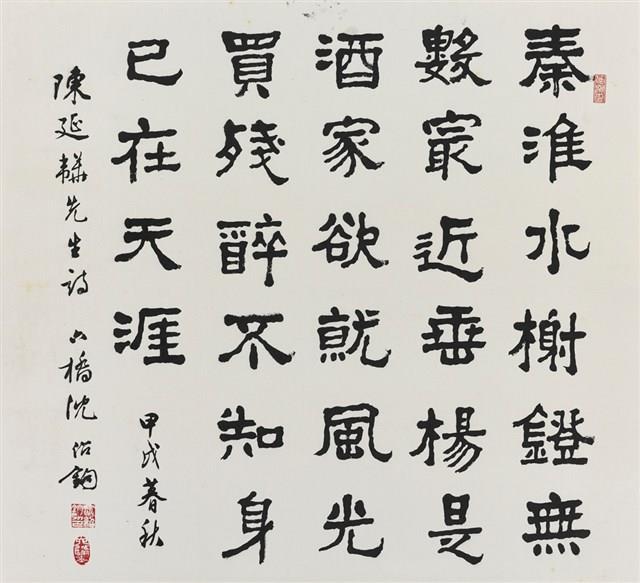 秦淮水榭鐙無
數宼近垂楊是
酒家欲就風光
買殘醉不知身
已在天涯 甲戌暮秋
陳延韡先生詩 六橋沈